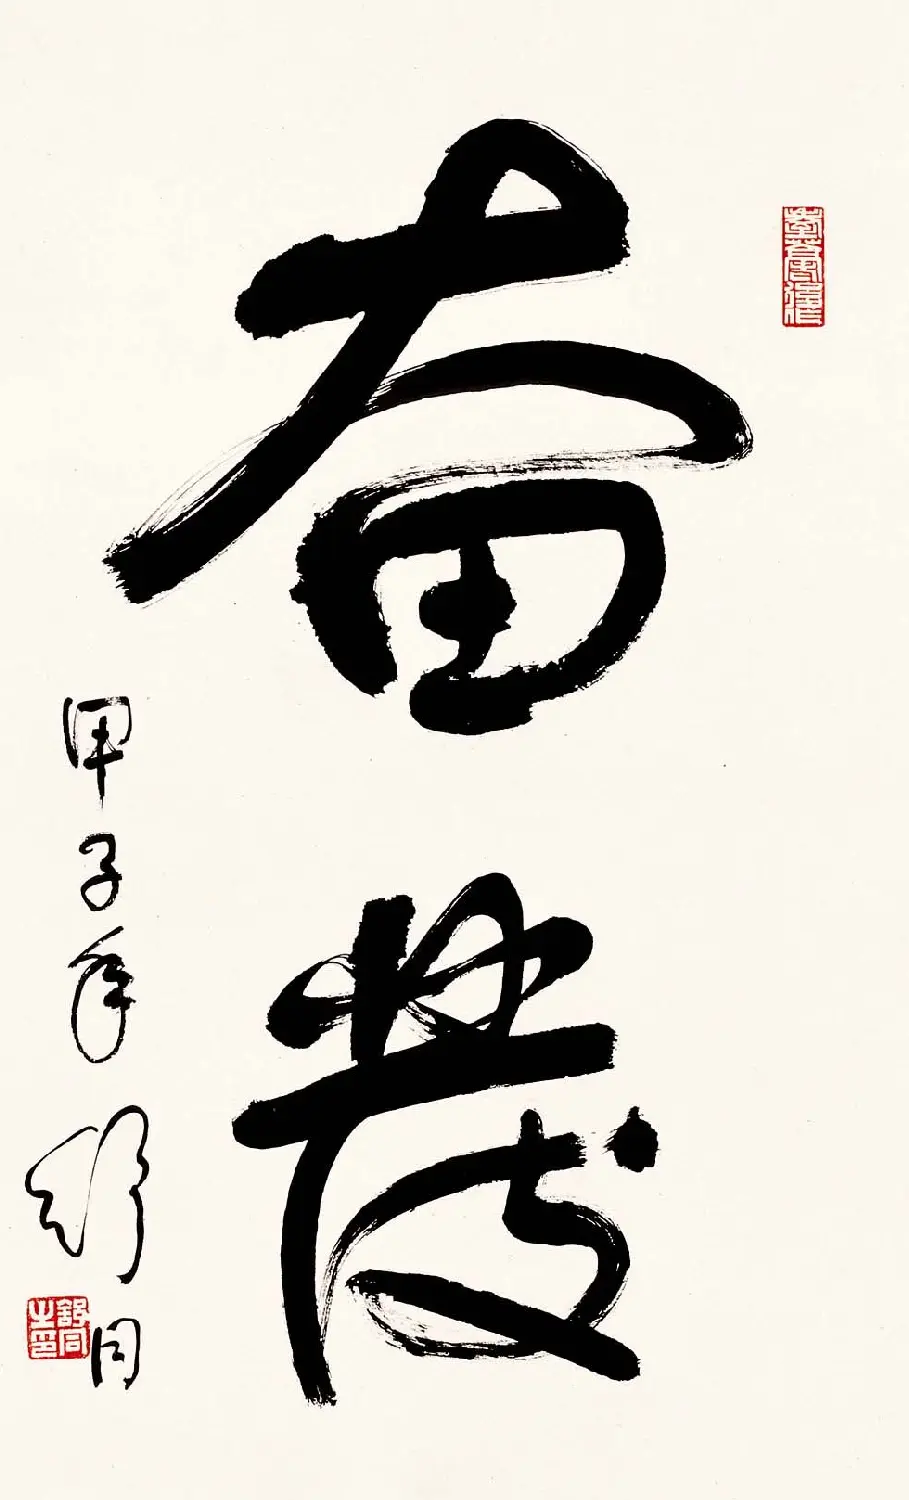 奋發
甲子年 舒同
舒同之印